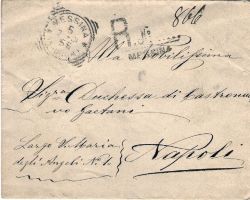 866
MESSINA
R. N°
MESSINA
Alla Nobilissima
Sig.ra Duchessa di Castronuo
vo Gaetani
Largo S. Maria
degli Angeli N. 1.
Napoli